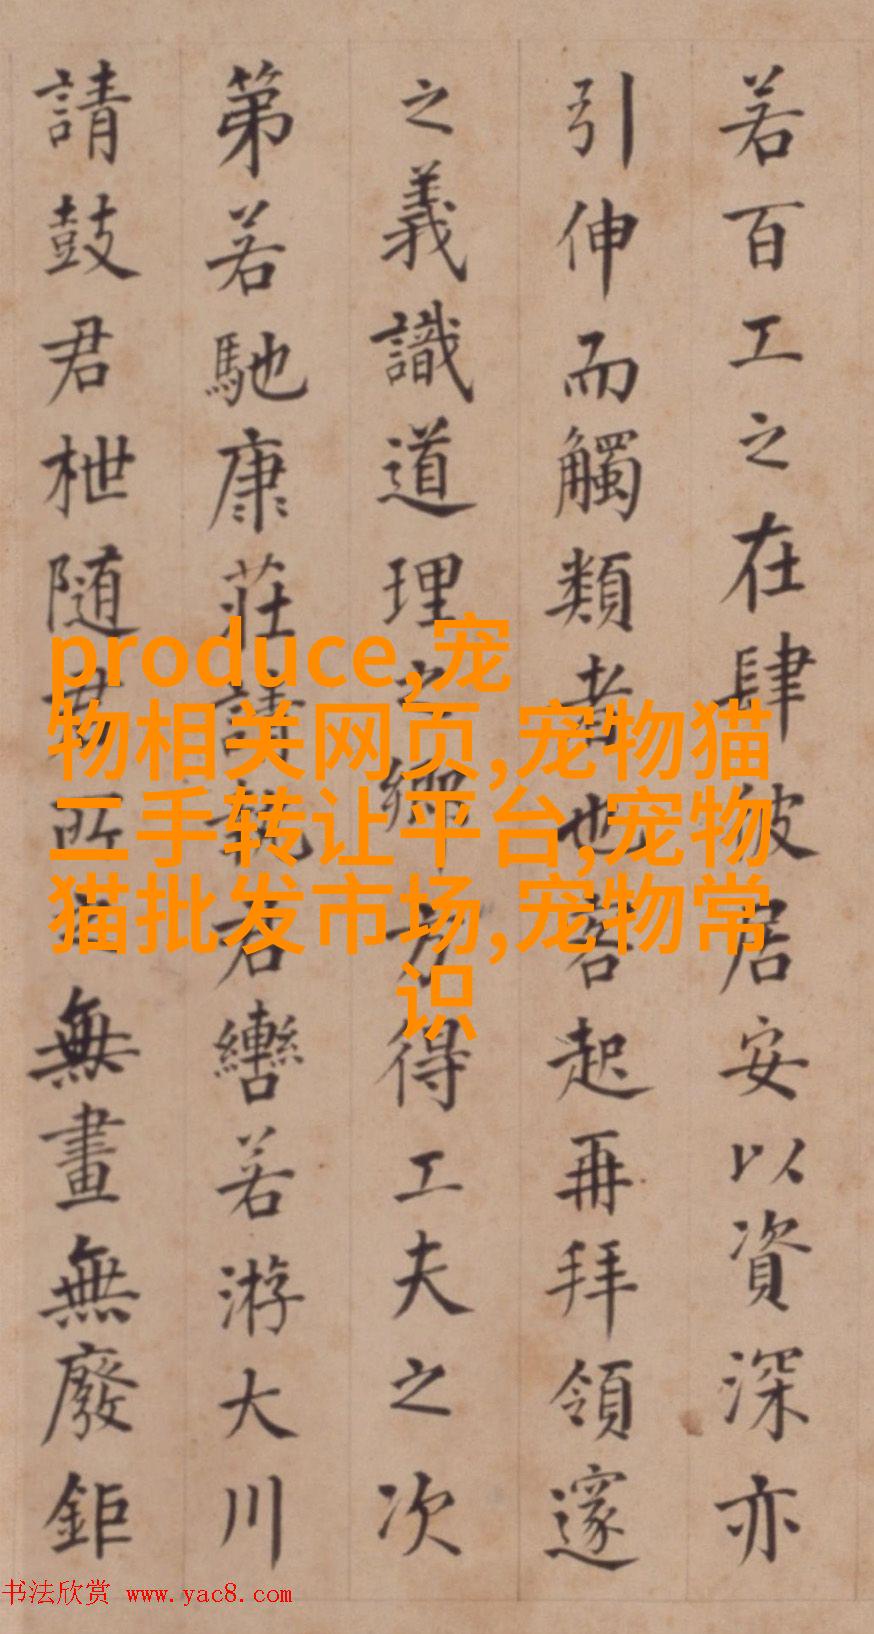 若百工之在肆彼居安以資深亦
引伸而觸類者也起再拜領邃
之義識道理之鄉方得工夫之次
第若馳康莊請執君轡若游大川
請鼓君枻随所無畫無廢鉅
produce,宠
物相关网页,宠物猫
二手转让平台,宠物
猫批发市场,宠物常
识
书法欣赏 www.yac8.com